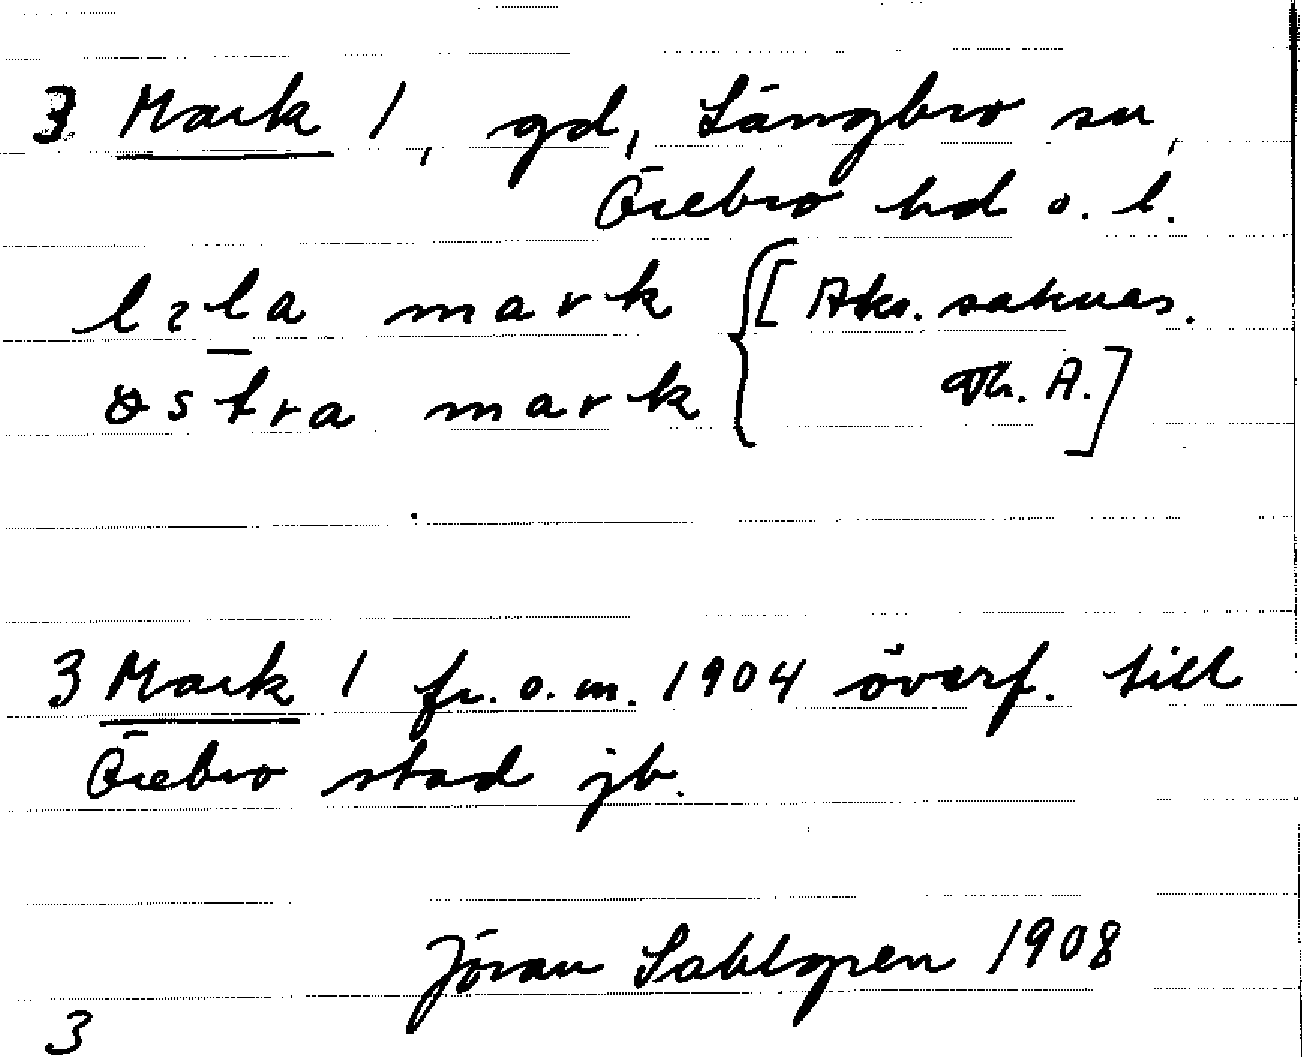 3 Mark 1, gd, Längbro sn,
Örebro hd o. l.
lɩla mark { [Aks. saknas.
østra mark Th. A.]
3 Mark 1 fr. o. m. 1904 överf. till
Örebro stad jb.
Jöran Sahlgren 1908
3